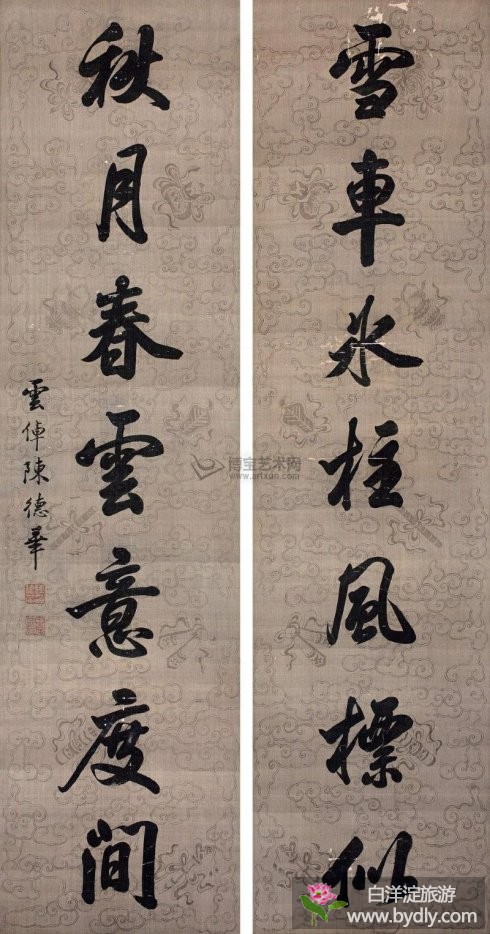 雪車冰柱風標似
秋月春雲意度間
雲倬陳德華
博宝艺术网
www.artxun.com
白洋淀旅游
www.bydly.com